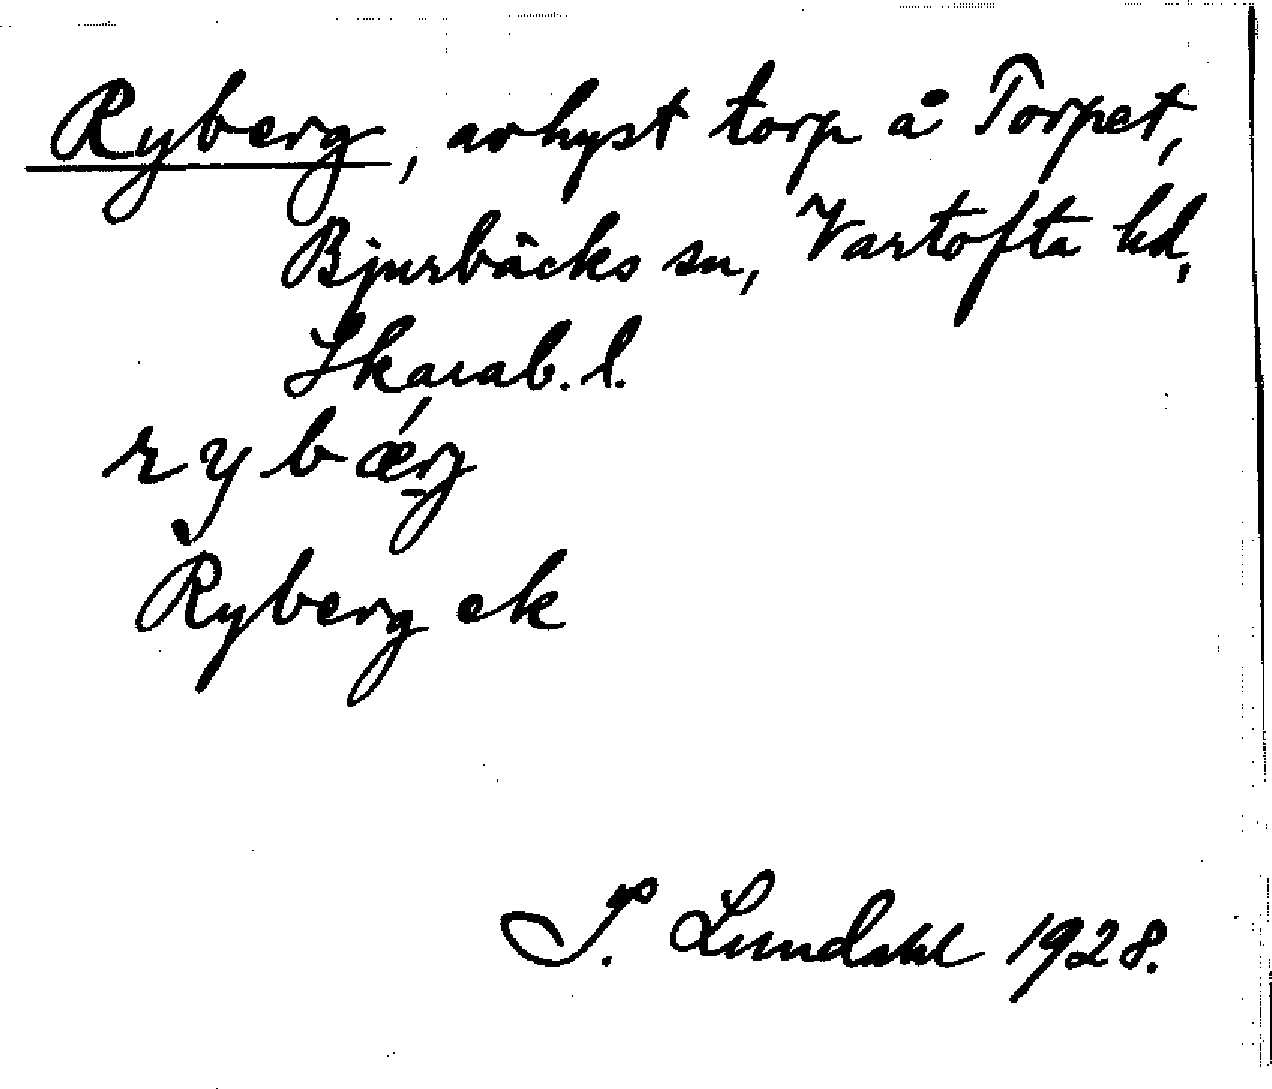 Ryberg, avhyst torp å Torpet,
Bjurbäcks sn, Vartofta hd,
Skarab. l.
rybǽrg
Ryberg ek
Lundahl 1928.